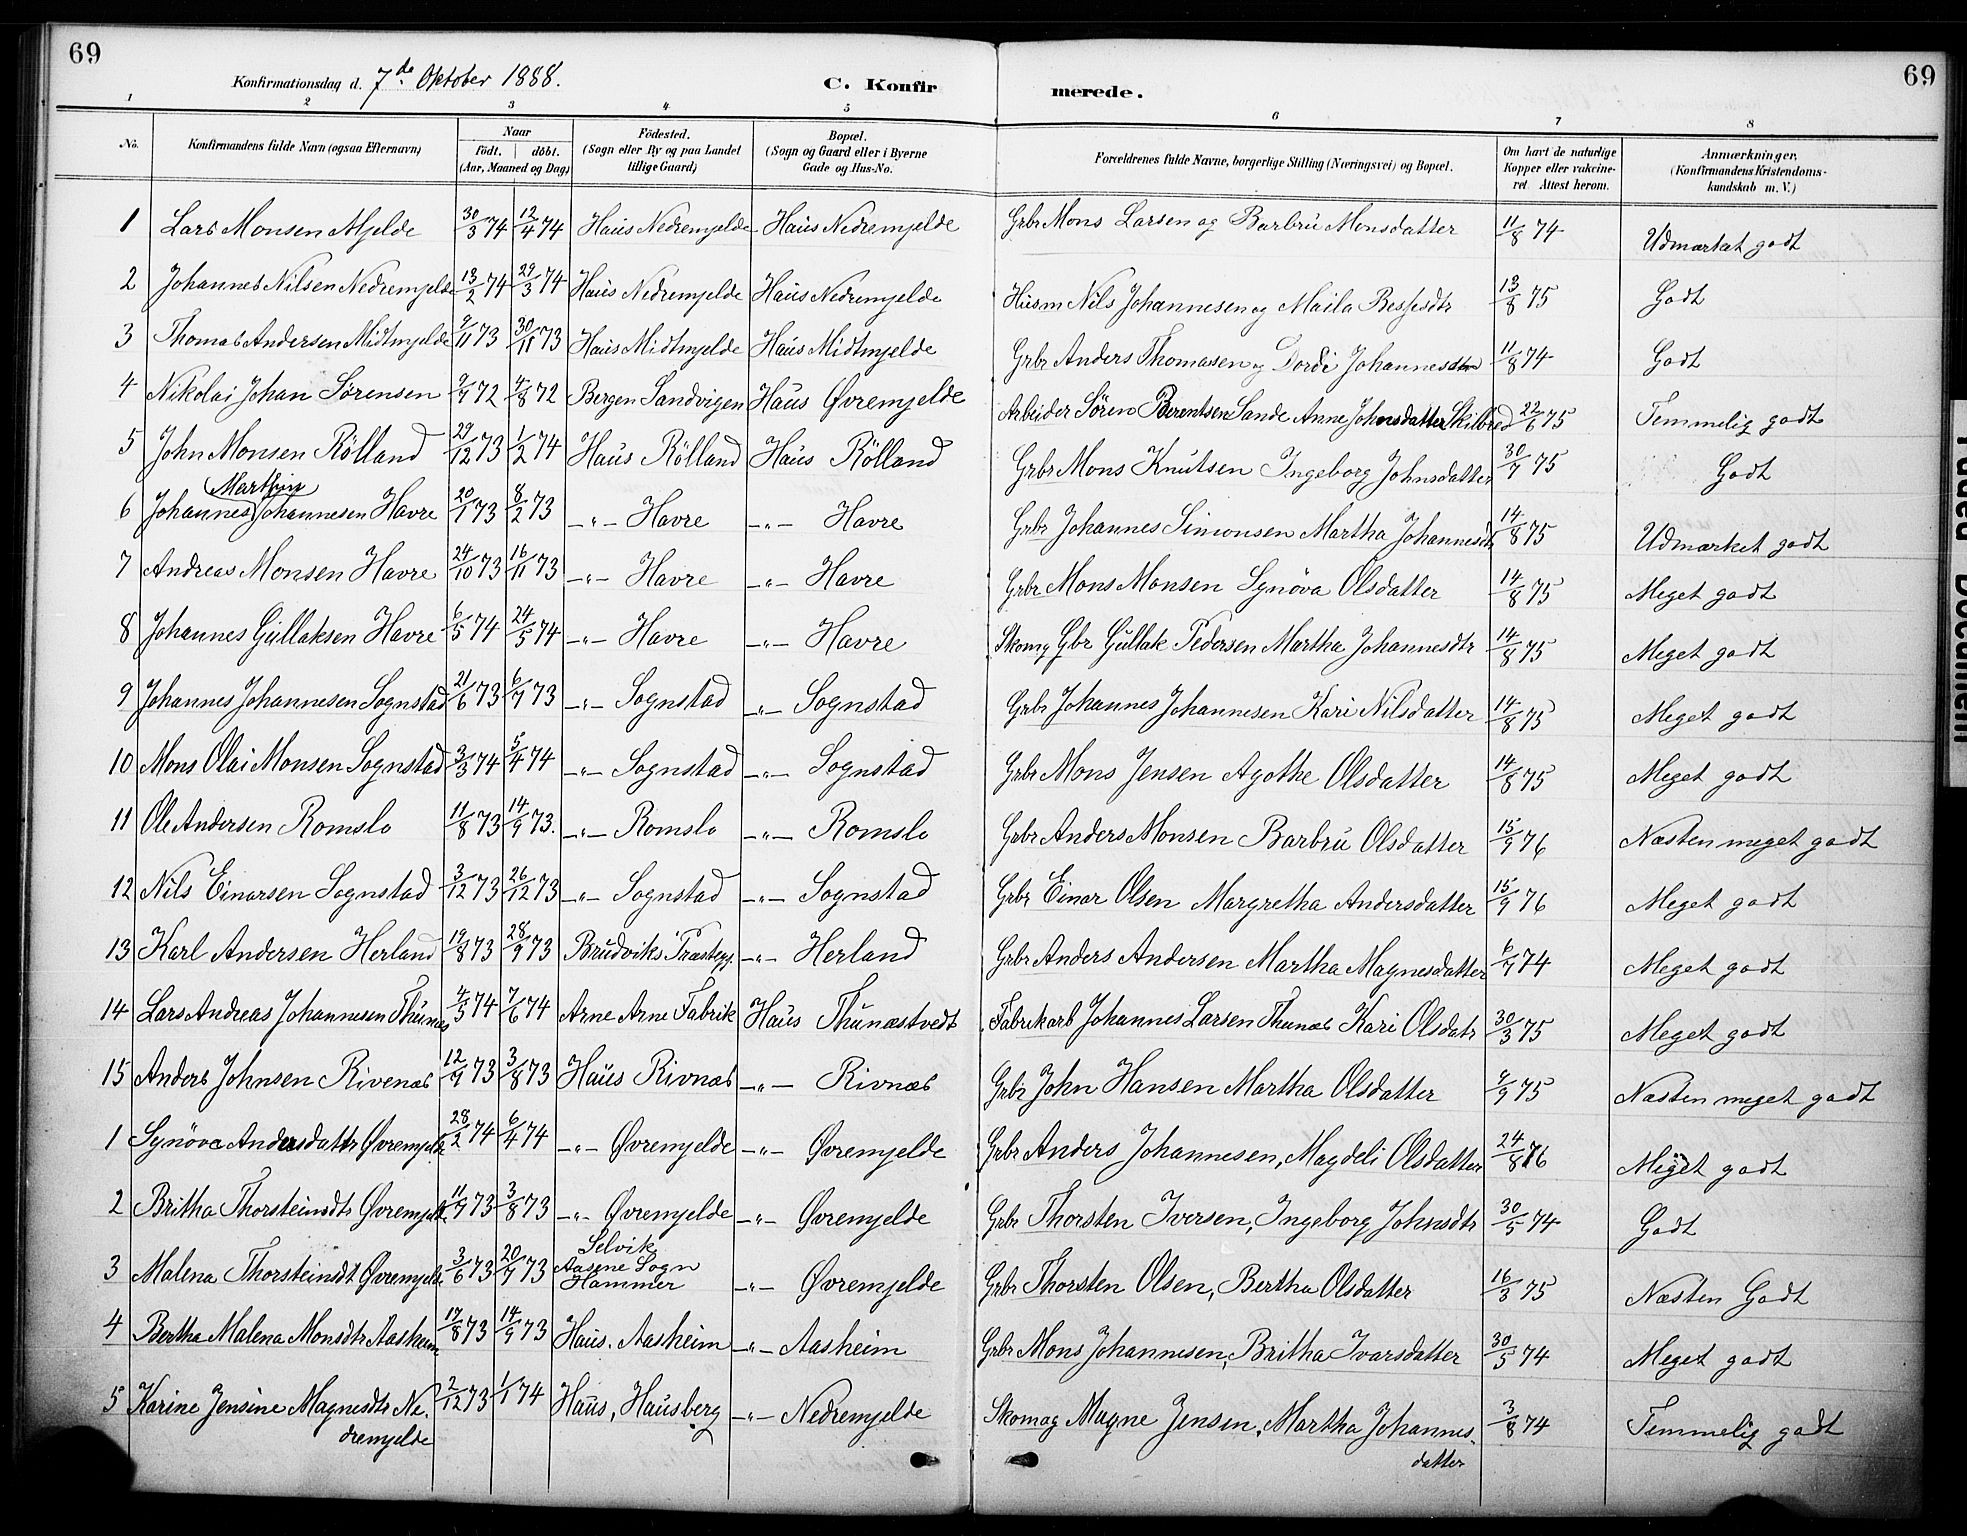 69
69
Konfirmationsdag d. 7de Oktober 1888.
C. Konfirmerede.
1 2 3 4 5 6 7 8
No.
Konfirmandens fulde Navn (ogsaa Efternavn)
Naar
födt. | döbt.
(Aar, Maaned og Dag)
Födested.
(Sogn eller By og paa Landet
tillige Gaard)
Bopæl.
(Sogn og Gaard eller i Byerne
Gade og Hus-No.
Forældrenes fulde Navne, borgerlige Stilling (Næringsvei) og Bopæl.
Om havt de naturlige
Kopper eller vakcine-
ret Attest herom.
Anmærkninger,
(Konfirmandens Kristendoms-
kundskab m. V.)
1 Lars Monsen Mjelde 30/3 74 12/4 74 Haus Nedremjelde Haus Nedremjelde Grbr Mons Larsen og Barbru Monsdatter 11/8 74 Udmærket godt
2 Johannes Nilsen Nedremjelde 13/2 74 29/3 74 Haus Nedremjelde Haus Nedremjelde Husm Nils Johannesen og Maila 13/8 75 Godt
3 Thomas Andersen Midtmjelde 9/11 73 30/11 73 Haus Midtmjelde Haus Midtmjelde Grbr Anders Thomasen og Dordi Johannesdtr 11/8 74 Godt
4 Nikolai Johan Sørensen 9/7 72 4/8 72 Bergen Sandvigen Haus Øvremjelde Arbeider Sören Berentsen Sande Anne Johnsdatter Skilbred 22/6 75 Temmelig godt
5 John Monsen Rölland 29/12 73 1/2 74 Haus Rölland Haus Rölland Grbr Mons Knutsen Ingeborg Johnsdatter 30/7 75 Godt
Marthin
6 Johannes Johannesen Havre 20/1 73 8/2 73 -"- Havre -"- Havre Grbr Johannes Simonsen Martha Johannesdtr 14/8 75 Udmærket godt
7 Andreas Monsen Havre 24/10 73 16/11 73 -"- Havre -"- Havre Grbr Mons Monsen Synöva Olsdatter 14/8 75 Meget godt
8 Johannes Gullaksen Havre 6/5 74 24/5 74 -"- Havre -"- Havre Skomg Gbr Gullak Pedersen Martha Johannesdtr 14/8 75 Meget godt
9 Johannes Johannesen Sognstad 21/6 73 6/7 73 -"- Sognstad -"- Sognstad Grbr Johannes Johannesen Kari Nilsdatter 14/8 75 Meget godt
10 Mons Olai Monsen Sognstad 3/3 74 5/4 74 -"- Sognstad -"- Sognstad Grbr Mons Jensen Agothe Olsdatter 14/8 75 Meget godt
11 Ole Andersen Romslo 11/8 73 14/9 73. -"- Romslo -"- Romslo Grbr Anders Monsen Barbru Olsdatter 15/9 76 Næsten meget godt
12 Nils Einarsen Sognstad 3/12 73 26/12 73 -"- Sognstad -"- Sognstad Grbr Einar Olsen Margretha Andersdatter 15/9 76 Meget godt
13 Karl Andersen Herland 19/8 73 28/9 73 Brudviks Præstegj. -"- Herland Grbr Anders Andersen Martha Magnesdatter 6/7 74 Meget godt
14 Lars Andreas Johannesen Thunæs 4/5 74 7/6 74 Arne Arne Fabrik Haus Thunæstvedt Fabrikarb Johannes Larsen Thunæs Kari Olsdatr 30/3 75 Meget godt
15 Anders Johnsen Rivenæs 12/7 73 3/8 73 Haus Rivnæs -"- Rivnæs Grbr John Hansen Martha Olsdatter 9/9 75 Næsten meget godt
1 Synöva Andersdattr Øvremjelde 28/2 74 6/4 74 -"- Øvremjelde -"- Øvremjelde Grbr Anders Johannesen, Magdeli Olsdatter 24/8 76 Meget godt
2 Britha Thorsteinsdtr Øvremjelde 11/7 73 3/8 73 -"- Øvremjelde -"- Øvremjelde Grbr Thorsten Iversen, Ingeborg Johnsdtr 30/5 74 Godt
Selvik
3 Malena Thorsteinsdt Øvremjelde 3/6 73 20/7 73 Aasene Sogn -"- Øvremjelde Grbr Thorsten Olsen, Bertha Olsdatter 16/3 75 Næsten Godt
Hammer
4 Bertha Malena Monsdtr Aasheim 17/8 73 14/9 73 Haus. Aasheim -"- Aasheim Grbr Mons Johannesen, Britha Ivarsdatter 30/5 74 Meget godt
5 Karine Jensine Magnesdtr Ne- 2/12 73 1/1 74 Haus, Hausberg -"- Nedremjelde Skomag Magne Jensen, Martha Johannes- 3/8 74 Temmelig godt
dremjelde
datter